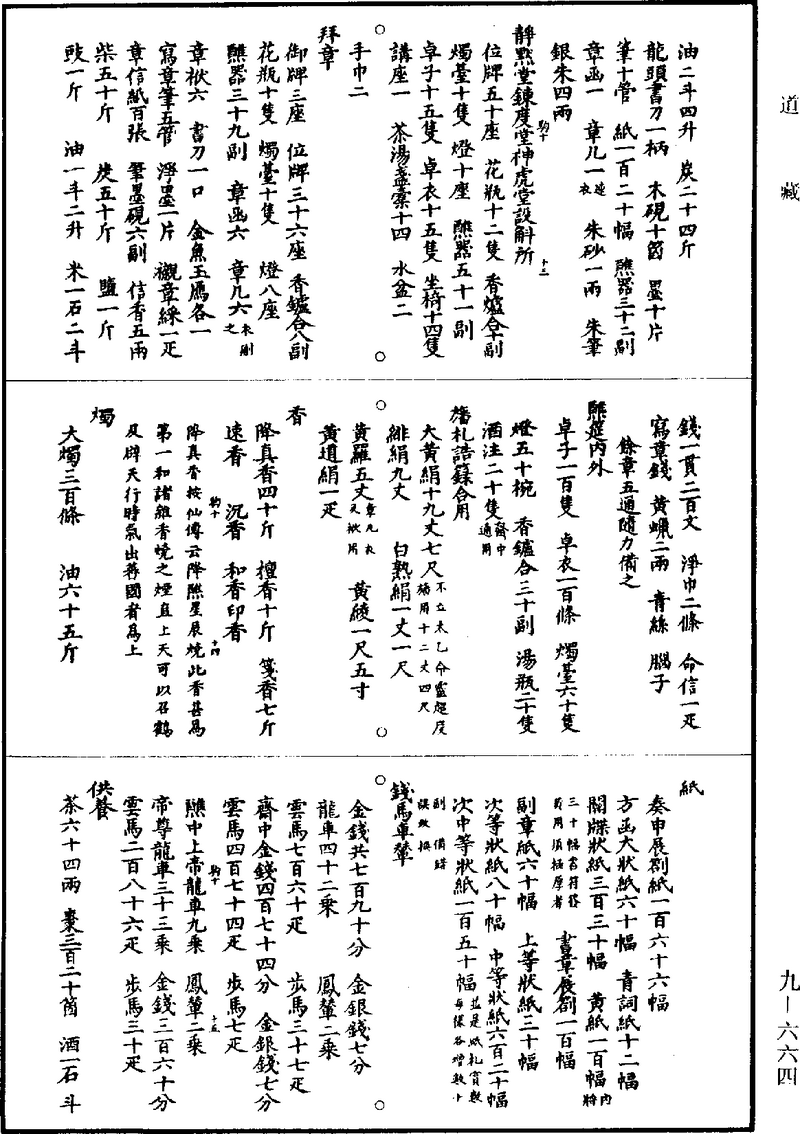 道藏
油二斗四升　炭二十四斤
龍頭書刀一柄　木硯十箇　墨十片
筆十管　紙一百二十幅　醮器三十二副
章函一　章几一衣連　朱砂一兩　朱筆
銀朱四兩
靜默堂鍊度堂神虎堂設斛所
位牌五十座　花瓶十二隻　香爐合十副
燭臺十隻　燈十座　醮器五十一副
卓子十五隻　卓衣十五隻　坐椅十四隻
講座一　茶湯盞橐十四　水盆二
手巾二
拜章
御牌三座　位牌三十六座　香鑪合八副
花瓶十隻　燭臺十隻　燈八座
醮器三十九副　章函六　章几六衣副之
章袱六　書刀一口　金魚玉鴈各一
寫章筆五管　淨墨一片　襯章綵一疋
章信紙百張　筆墨硯六副　信香五兩
柴五十斤　炭五十斤　鹽一斤
豉一斤　油一斗二升　米一石二斗
錢一貫二百文　淨巾二條　命信一疋
寫章錢　黃蠟二兩　青絲　腦子
餘章五通隨力備之
醮筵內外
卓子一百隻　卓衣一百條　燭臺六十隻
燈五十椀　香鑪合三十副　湯瓶二十隻
酒注二十隻齋中通用
旛札誥籙合用
大黃絹十九丈七尺不立太乙命靈超度旛用十二丈四尺
緋絹九丈　白熟絹一丈一尺
黃羅五丈章几衣又袱用　黃綾一尺五寸
黃道絹一疋
香
降真香四十斤　檀香十斤　箋香七斤
速香　沉香　和香印香
降真香按仙傳云降醮星辰燒此香甚爲
第一和諸雜香燒之煙直上天可以召鶴
及辟天行時氣出蕃國者爲上
燭
大燭三百條　油六十五斤
紙
奏申展劄紙一百六十六幅
方函大狀紙六十幅　青詞紙十二幅
關牒狀紙三百三十幅　黃紙一百幅內將
三十幅書符簽　書章展劄一百幅
副章紙六十幅　上等狀紙三十幅
次等狀紙八十幅　中等狀紙六百二十幅
次中等狀紙一百五十幅並是紙札實數每樣各增數十
副備錯誤改換
錢馬車輦
金錢共七百九十分　金銀錢七分
龍車四十二乘　鳳輦二乘
雲馬七百六十疋　步馬三十七疋
齋中金錢四百七十四分　金銀錢七分
雲馬四百七十四疋　步馬七疋
醮中上帝龍車九乘　鳳輦二乘
帝尊龍車三十三乘　金錢三百六十分
雲馬二百八十六疋　步馬三十疋
供養
茶六十四兩　棗三百二十箇　酒一石斗
九－六六四